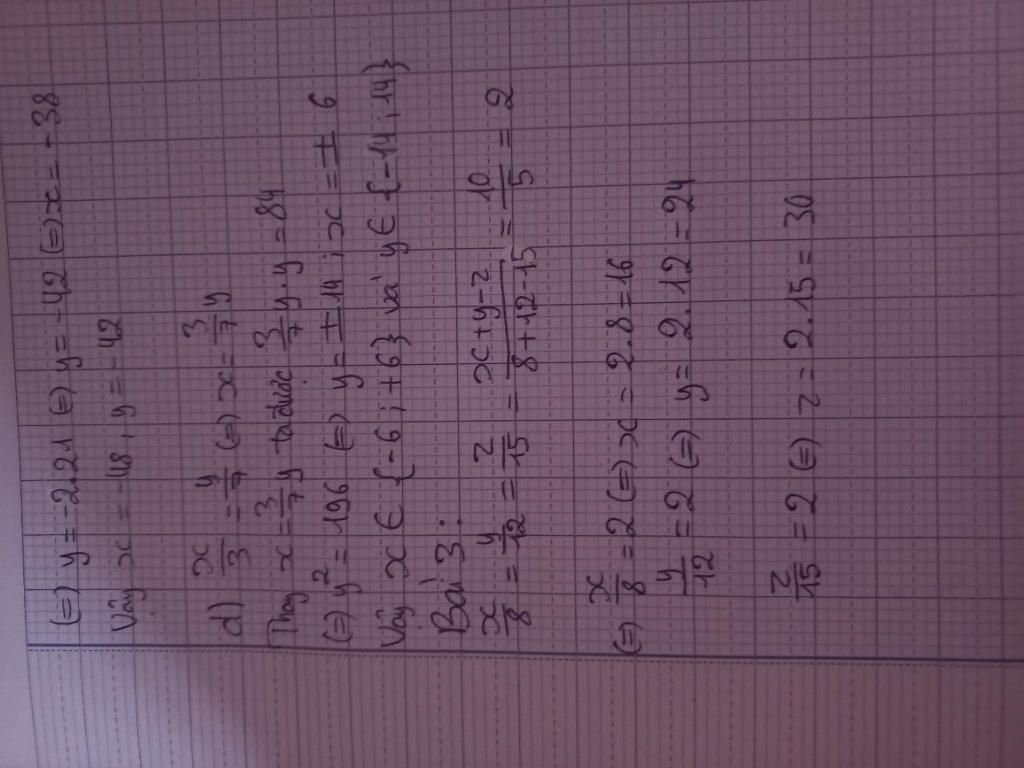 (=) y = -2.21 (=) y = -42 (=) x = -38
Vậy x = -48, y = -42
d) x/3 = y/7 (=) x = 3/7 y
Thay x = 3/7 y ta được 3/7 y.y = 84
(=) y² = 196 (=) y = ±14 ; x = ± 6
Vậy x ∈ {-6 ; +6} và y ∈ {-14 ; 14}
Bài 3 :
x/8 = y/12 = z/15 = x+y-z/8+12-15 = 10/5 = 2
(=) x/8 = 2 (=) x = 2.8 = 16
y/12 = 2 (=) y = 2.12 = 24
z/15 = 2 (=) z = 2.15 = 30